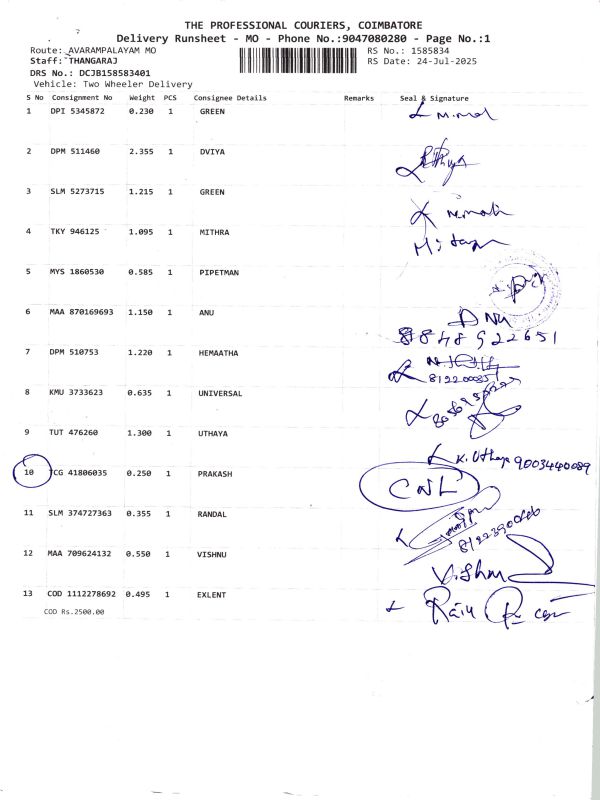 THE PROFESSIONAL COURIERS, COIMBATORE
Delivery Runsheet - MO - Phone No.:9047080280 - Page No.:1
Route: AVARAMPALAYAM MO RS No.: 1585834
Staff: THANGARAJ RS Date: 24-Jul-2025
DRS No.: DCJB158583401
Vehicle: Two Wheeler Delivery
S No Consignment No Weight PCS Consignee Details Remarks Seal & Signature
1 DPI 5345872 0.230 1 GREEN
2 DPM 511460 2.355 1 DVIYA
3 SLM 5273715 1.215 1 GREEN
4 TKY 946125 1.095 1 MITHRA
5 MYS 1860530 0.585 1 PIPETMAN
6 MAA 870169693 1.150 1 ANU
8848922651
7 DPM 510753 1.220 1 HEMAATHA
8 KMU 3733623 0.635 1 UNIVERSAL
9 TUT 476260 1.300 1 UTHAYA K. Uthaya 9003440089
10 TCG 41806035 0.250 1 PRAKASH CNL
11 SLM 374727363 0.355 1 RANDAL
12 MAA 709624132 0.550 1 VISHNU
13 COD 1112278692 0.495 1 EXLENT Raju
COD Rs.2500.00